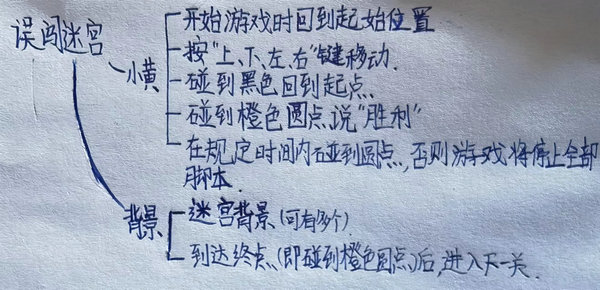 误闯迷宫
小黄
开始游戏时回到起始位置
按"上、下、左、右"键移动.
碰到黑色回到起点.
碰到橙色圆点说"胜利"
在规定时间内碰到圆点,否则游戏将停止全部
脚本.
背景
迷宫背景(可有多个)
到达终点(即碰到橙色圆点)后,进入下一关.